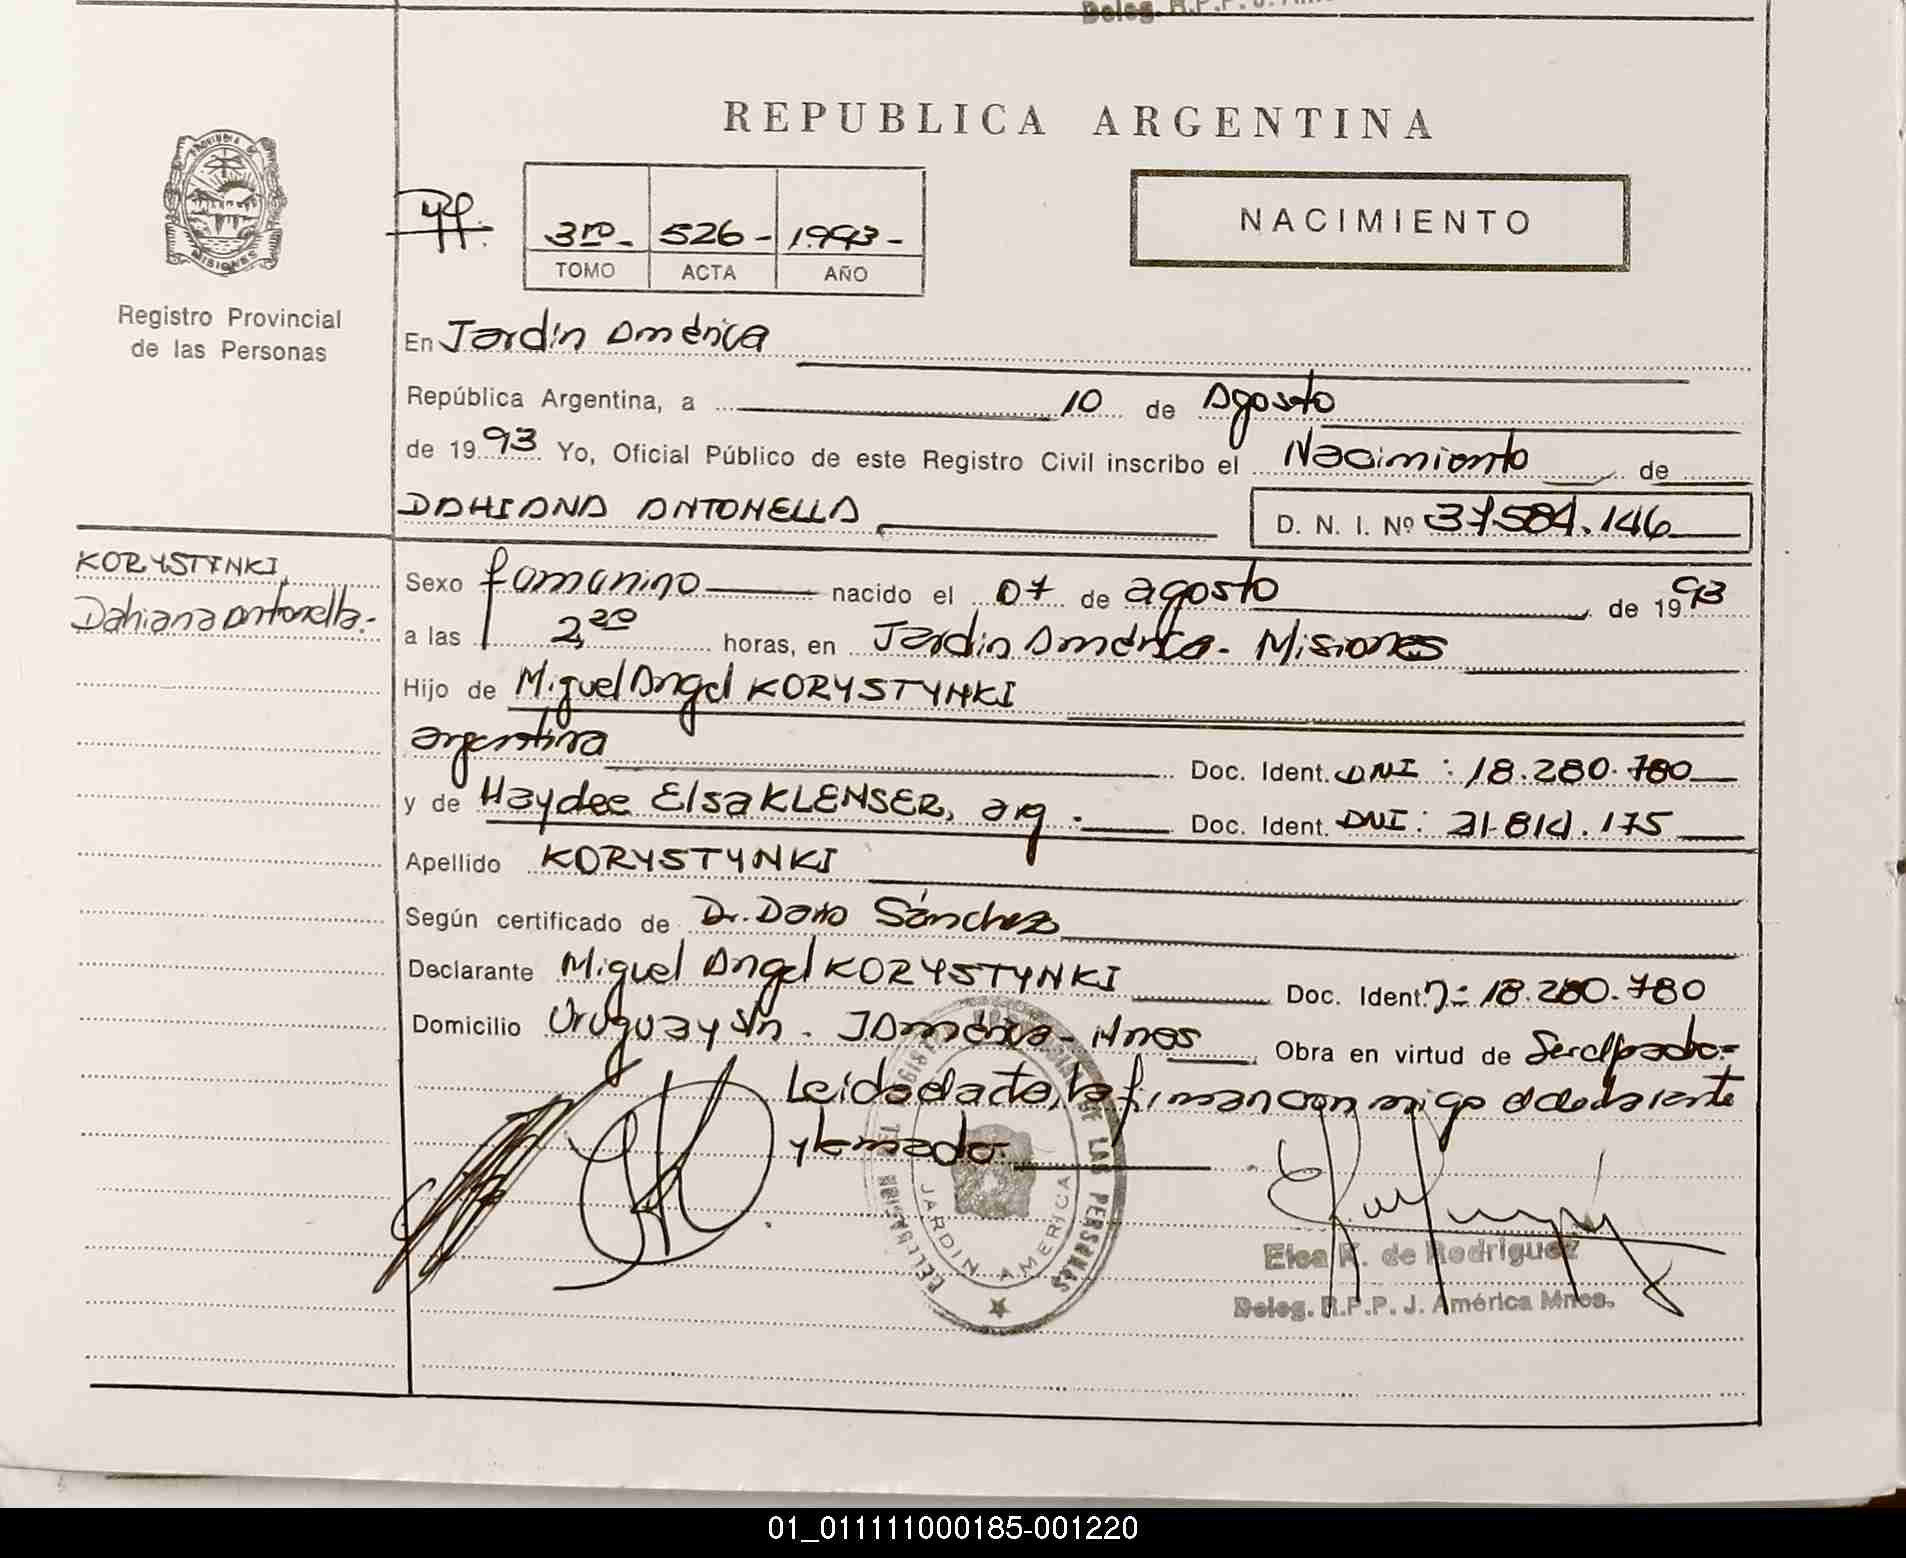 REPUBLICA ARGENTINA
PROVINCIA DE
MISIONES
Registro Provincial
de las Personas
3ro - 526 - 1993 -
TOMO ACTA AÑO
NACIMIENTO
En Jardín América
República Argentina, a 10 de Agosto
de 1993 Yo, Oficial Público de este Registro Civil inscribo el Nacimiento de
DAHIANA ANTONELLA D. N. I. Nº 37.584.146
KORYSTYNKI
Dahiana Antonella.-
Sexo femenino nacido el 07 de agosto de 1993
a las 2,20 horas, en Jardín América - Misiones
Hijo de Miguel Angel KORYSTYNKI
argentina Doc. Ident. DNI : 18.280.780
y de Haydee Elsa KLENSER, arg. Doc. Ident. DNI : 21.814.175
Apellido KORYSTYNKI
Según certificado de Dr. Darío Sánchez
Declarante Miguel Angel KORYSTYNKI Doc. Ident. 18.280.780
Domicilio Uruguay s/n . J América - Mnes Obra en virtud de
Leida el acta, la firman con migo el declarante
DE LAS PERSONAS
JARDIN AMERICA
Elsa K. de Rodriguez
Deleg. R.P.P. J. América Mnes.
01_011111000185-001220